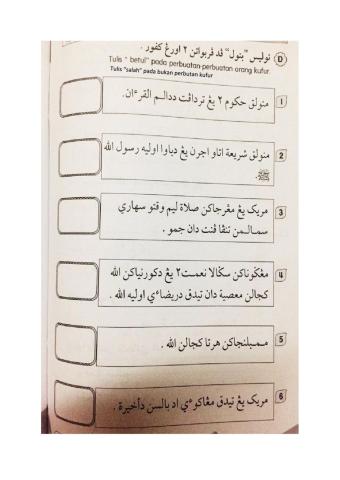 D توليس "بتول" ڤد ڤربواتن ٢ اورڠ كفور .
Tulis " betul" pada perbuatan-perbuatan orang kufur.
Tulis "salah" pada bukan perbutan kufur
1 منولق حكوم ٢ يڠ ترداڤت ددالم القرءان.
2 منولق شريعة اتاو اجرن يڠ دباوا اوليه رسول الله
ﷺ.
3 مريک يڠ مڠرجاكن صلاة ليم وقتو سهاري
سمالمن تنڤا ڤنت دان جمو .
4 مڠݢوناكن سݢالا نعمت٢ يڠ دكورنياكن الله
كجالن معصية دان تيدق دريضاءي اوليه الله .
5 ممبلنجاكن هرتا كجالن الله .
6 مريک يڠ تيدق مڠاكوءي اد بالسن دأخيرة .